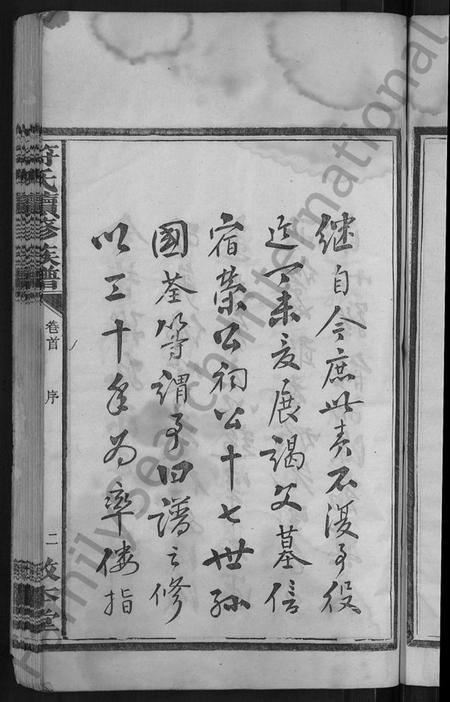 继自今庶此责不復予役
迄丁未爰展謁父墓信
宿榮公祠公十七世孫
國荃等謂予曰譜之修
以三十年為率僂指
符氏續修族譜
卷首
序
二
FamilySearch International